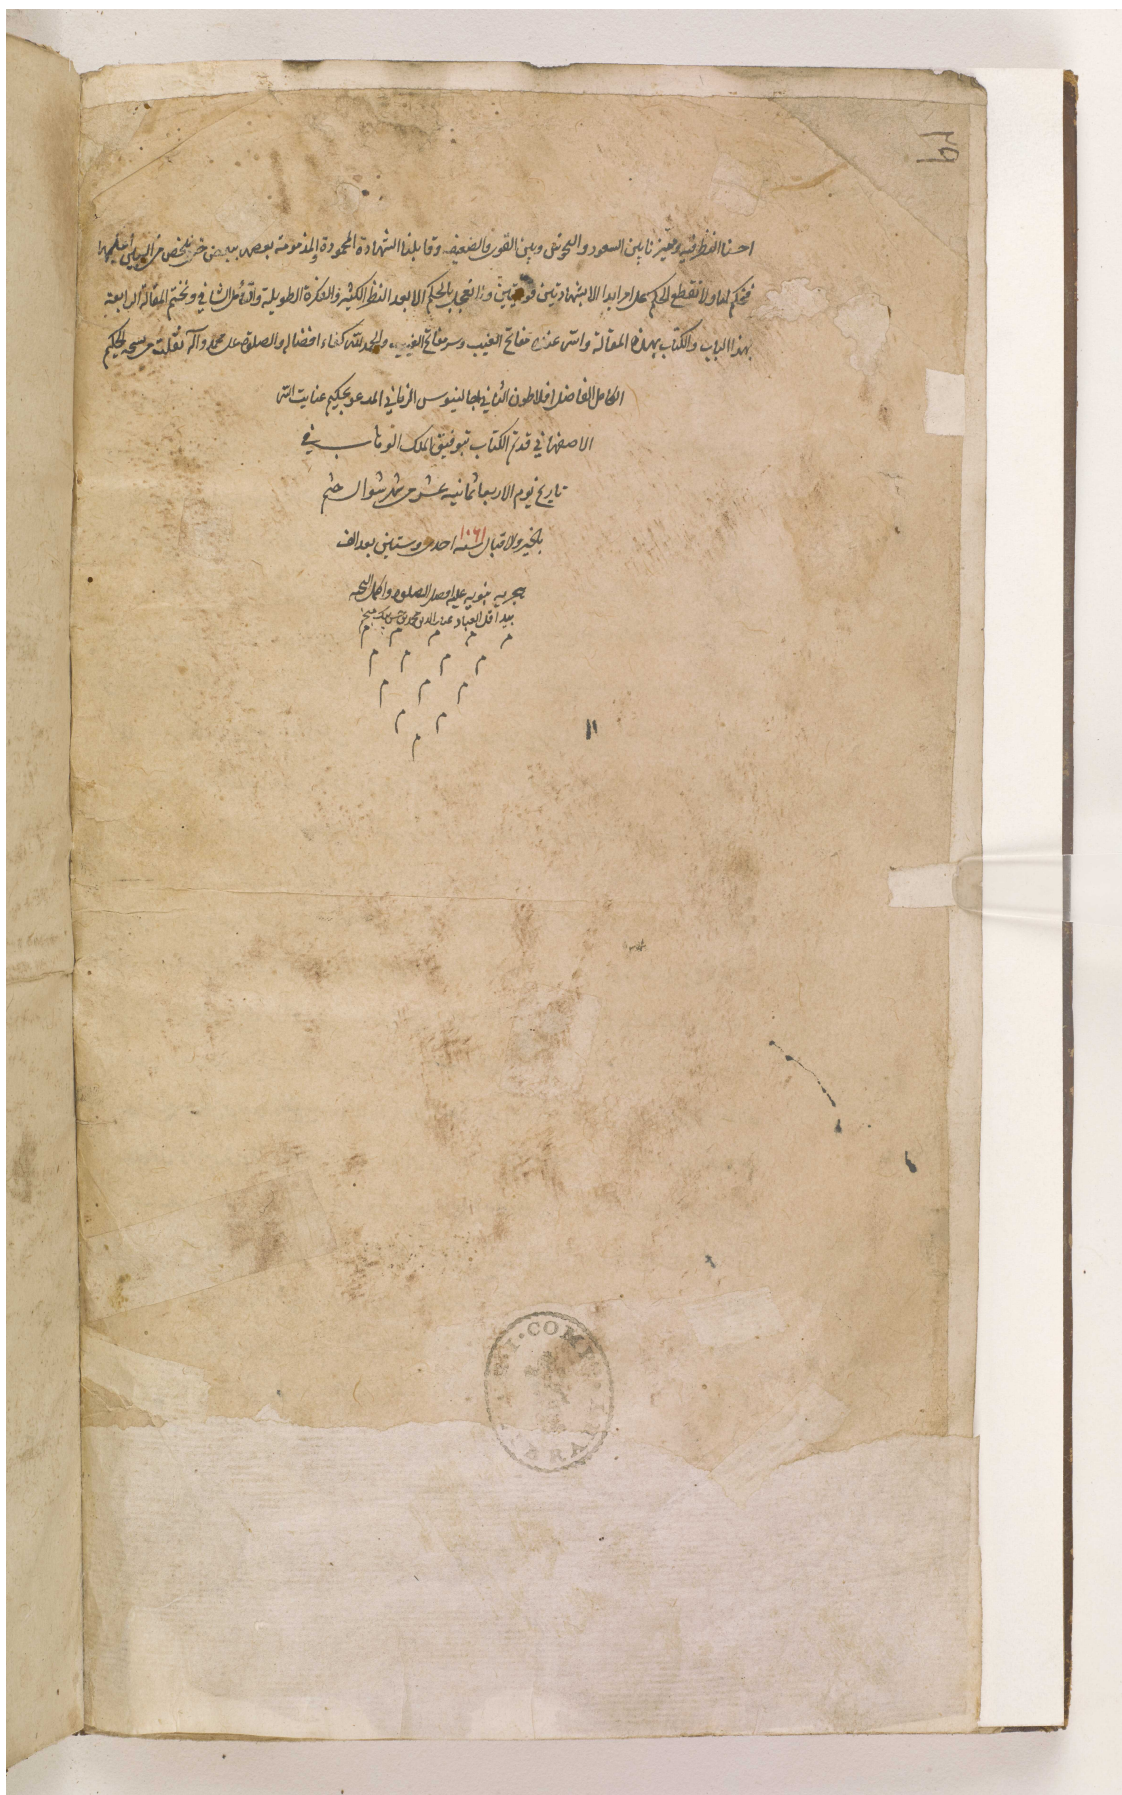 ٢٩
احسنا النظر فيه وميزنا بين السعود والنحوس وبين القوى والضعيف وقابلنا الشهادة المحمودة والمذمومة بعضها ببعض حتى
فنحكم لها ولا نقطع الحكم على امر ابدا الا بشهادتين ولا نعجل بالحكم الا بعد النظر الكثير والفكرة الطويلة الشافي ونختم المقالة الرابعة
بهذا الباب والكتاب بهذه المقالة والله عنده مفاتح الغيب والحمد لله كفاء افضاله والصلوة على محمد وآله نقلت من نسخه الحكيم
الكامل الفاضل افلاطون الثاني جالينوس الزماني المدعو بحكيم عنايت الله
الاصفهاني قد تم الكتاب بتوفيق الملك الوهاب في
تاريخ يوم الاربعا ثمانيه عشر من شهر شوال ختم
بالخير والاقبال سنه ١٠٦١ احدى وستين بعد الف
هجريه نبويه عليه افضل الصلوة واكمل التحيه
بيد اقل العباد
م م م م م
م م م م
م م م
م م
م
١١
E.I.COMP
LIBRARY